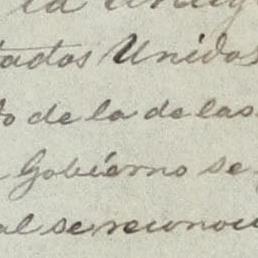 la
tados Unidos
to de la de las
Gobierno se
al se reconoci